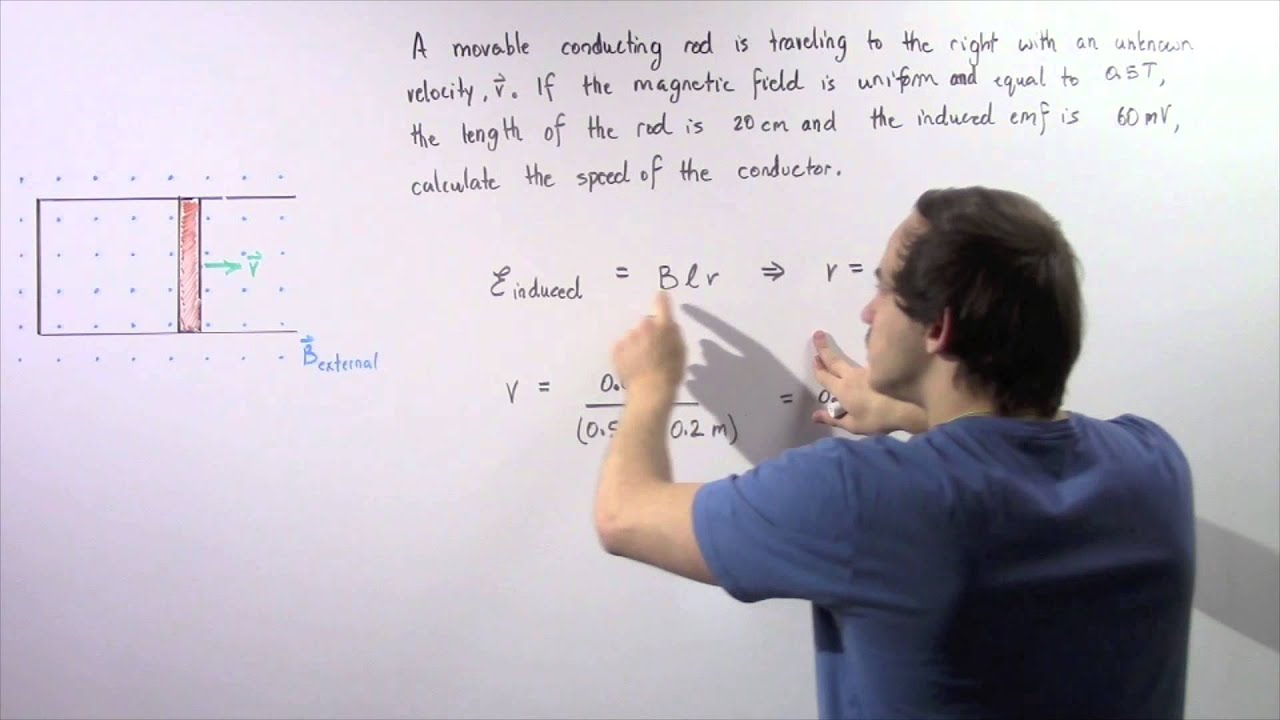 A movable conducting rod is traveling to the right with an unknown
velocity, v⃗. If the magnetic field is uniform and equal to 0.5T,
the length of the rod is 20 cm and the induced emf is 60 mV,
calculate the speed of the conductor.
v⃗
B⃗ external
Ɛ induced = B l v ⇒ v =
V = 0.
(0.5 0.2 m)
= 0.